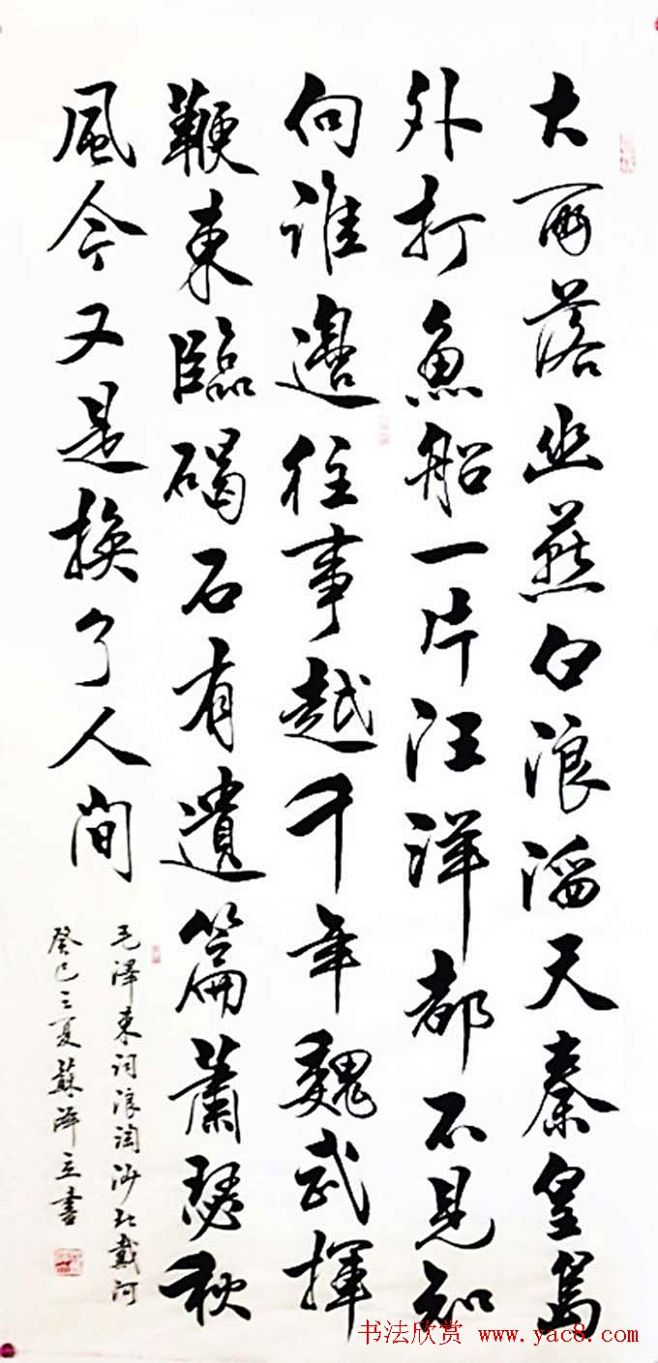 大雨落幽燕白浪滔天秦皇島
外打魚船一片汪洋都不見知
向誰邊往事越千年魏武揮
鞭東臨碣石有遺篇蕭瑟秋
風今又是換了人間
毛澤東詞浪淘沙北戴河
癸巳之夏蘇澤立書
书法欣赏 www.yac8.com